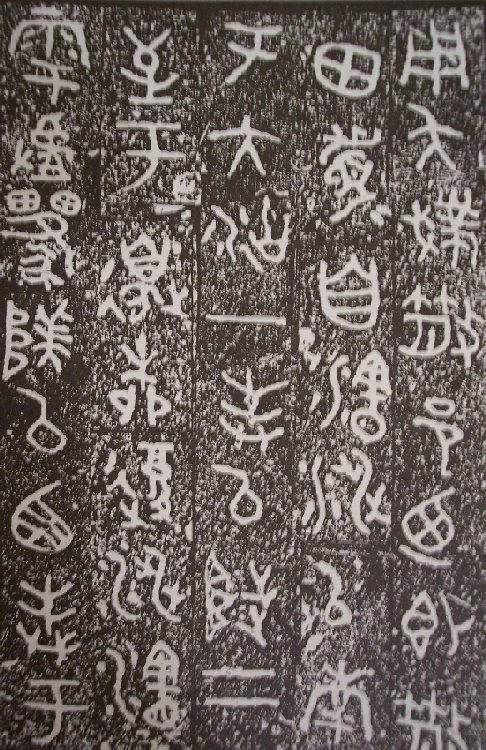 用夨散邑迺即散
田眉自瀗涉以南
于大沽一封以陟二
至于邊柳復涉瀗
雩以西封于